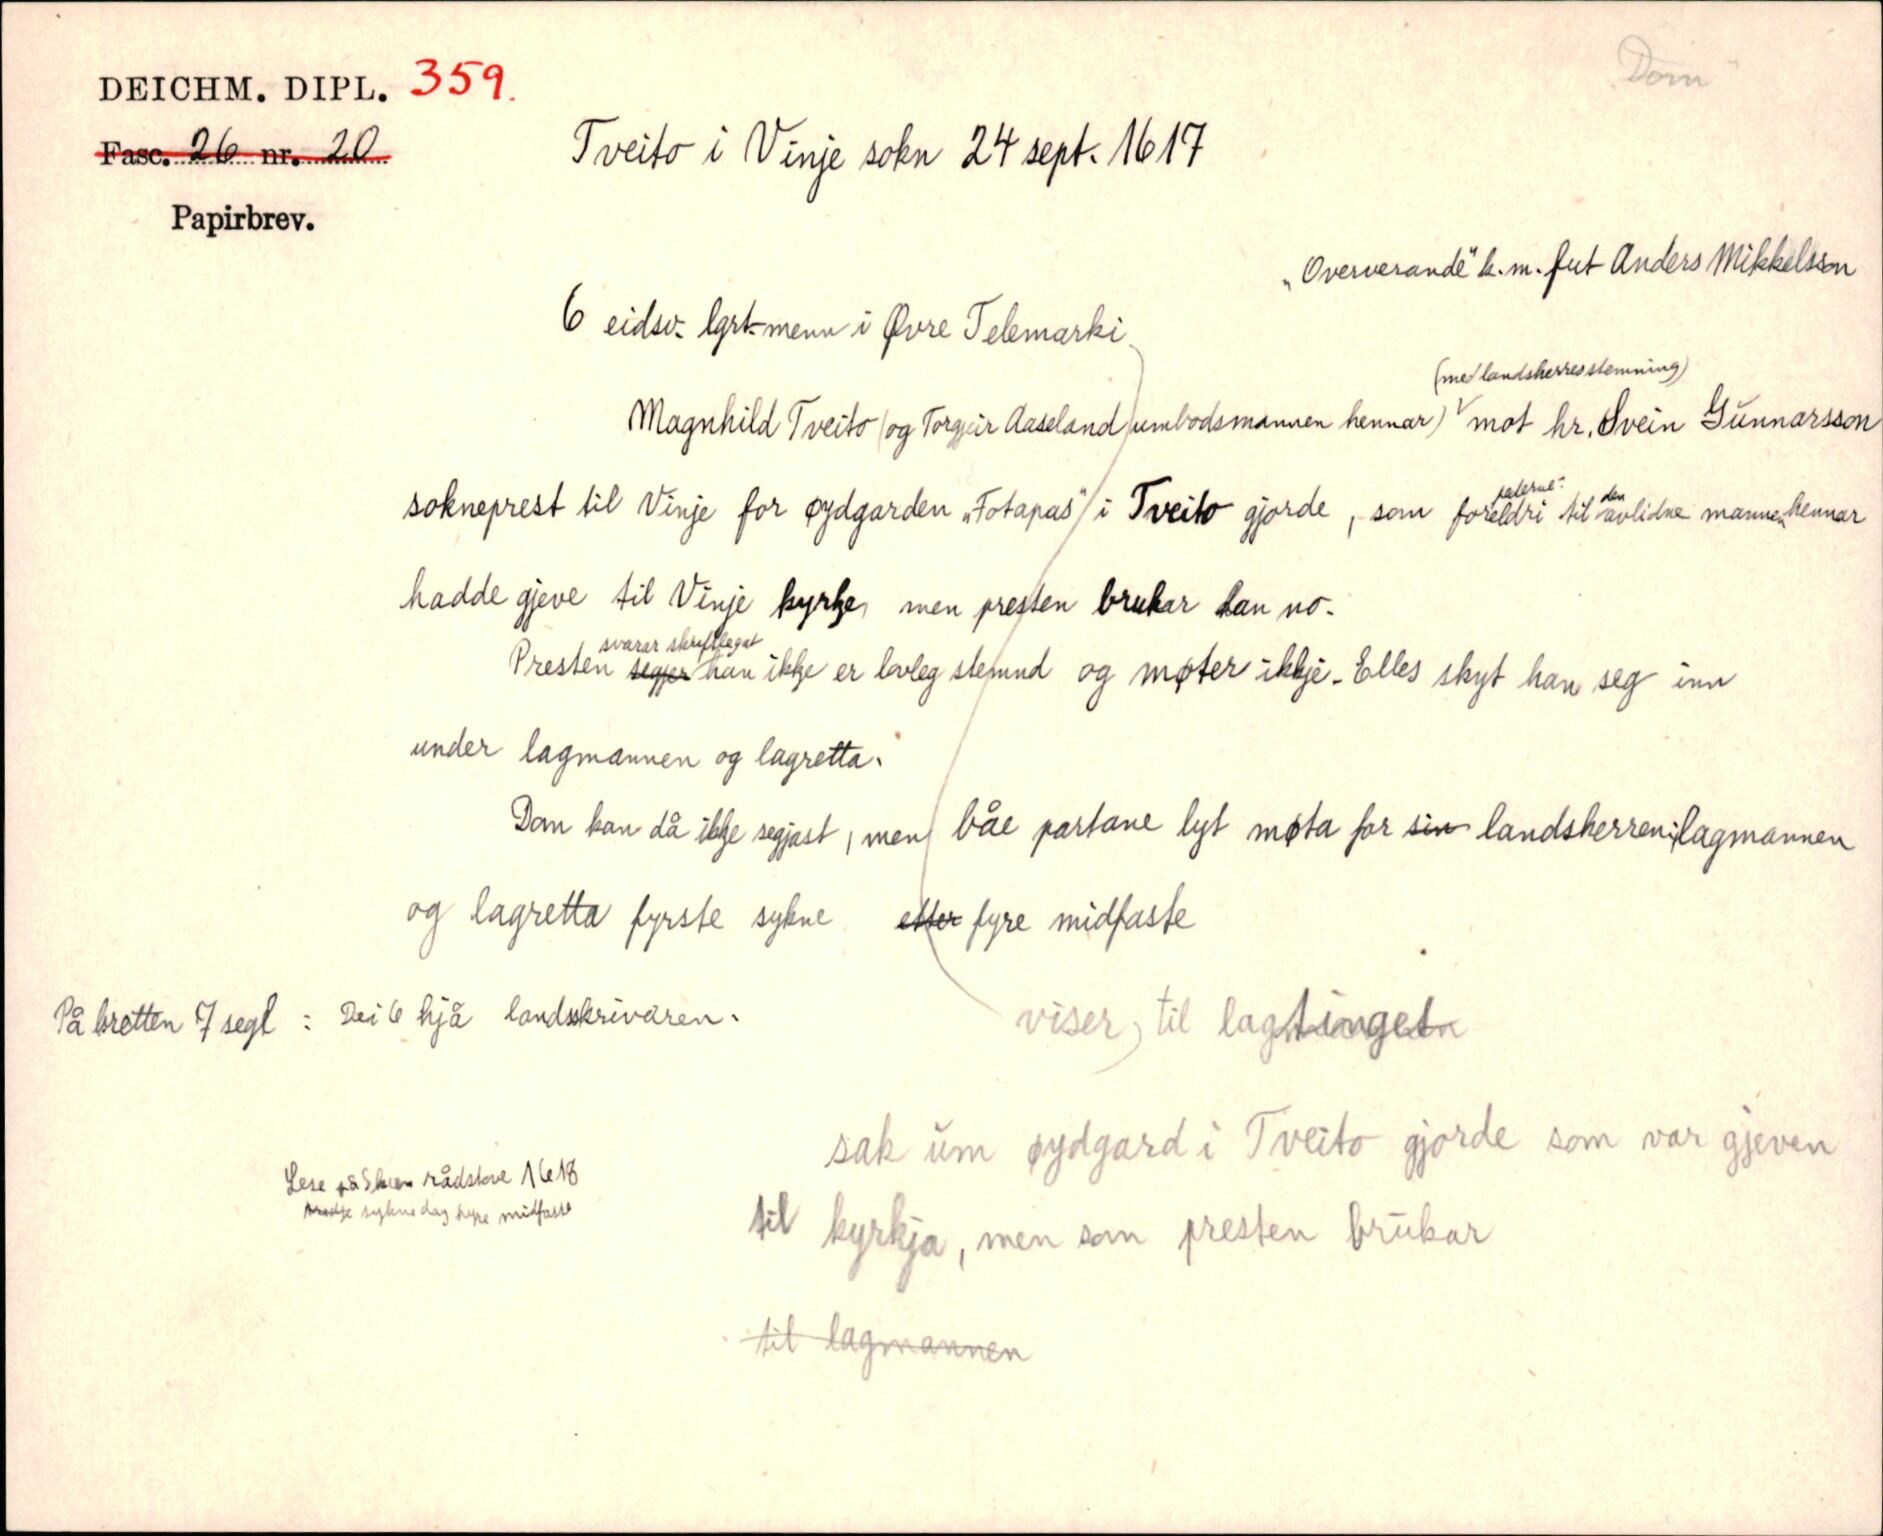 DEICHM. DIPL. 359.
Dom
Fasc. 26 nr. 20
Tveito i Vinje sokn 24 sept. 1617
Papirbrev.
„Oververande" k.m. fut Anders Mikkelsson
6 eidsv. lgrt-menn i Øvre Telemarki
(med landsherresstemning)
Magnhild Tveito (og Torgjeir Aaseland umbodsmannen hennar) mot hr. Svein Gunnarsson
sokneprest til Vinje for øydgarden „Fotapas" i Tveito gjorde, som foreldri til den avlidne mannen hennar
hadde gjeve til Vinje kyrkje, men presten brukar han no.
svarar skriftlegat
Presten segjer han ikkje er lovleg stemnd og møter ikkje. Elles skyt han seg inn
under lagmannen og lagretta.
Dom kan då ikkje segjast, men båe partane lyt møta for sin landsherren, lagmannen
og lagretta fyrste sykne etter fyre midfaste
På bretten 7 segl : Dei 6 hjå landsskrivaren.
viser til lagtinget
sak um øydgard i Tveito gjorde som var gjeven
Lese på Skien rådstove 1618
tredje sykne dag fyre midfaste
til kyrkja, men som presten brukar
til lagmannen